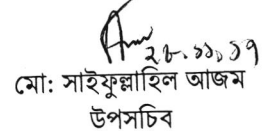 ২৮.১১.১৭
মো: সাইফুল্লাহিল আজম
উপসচিব